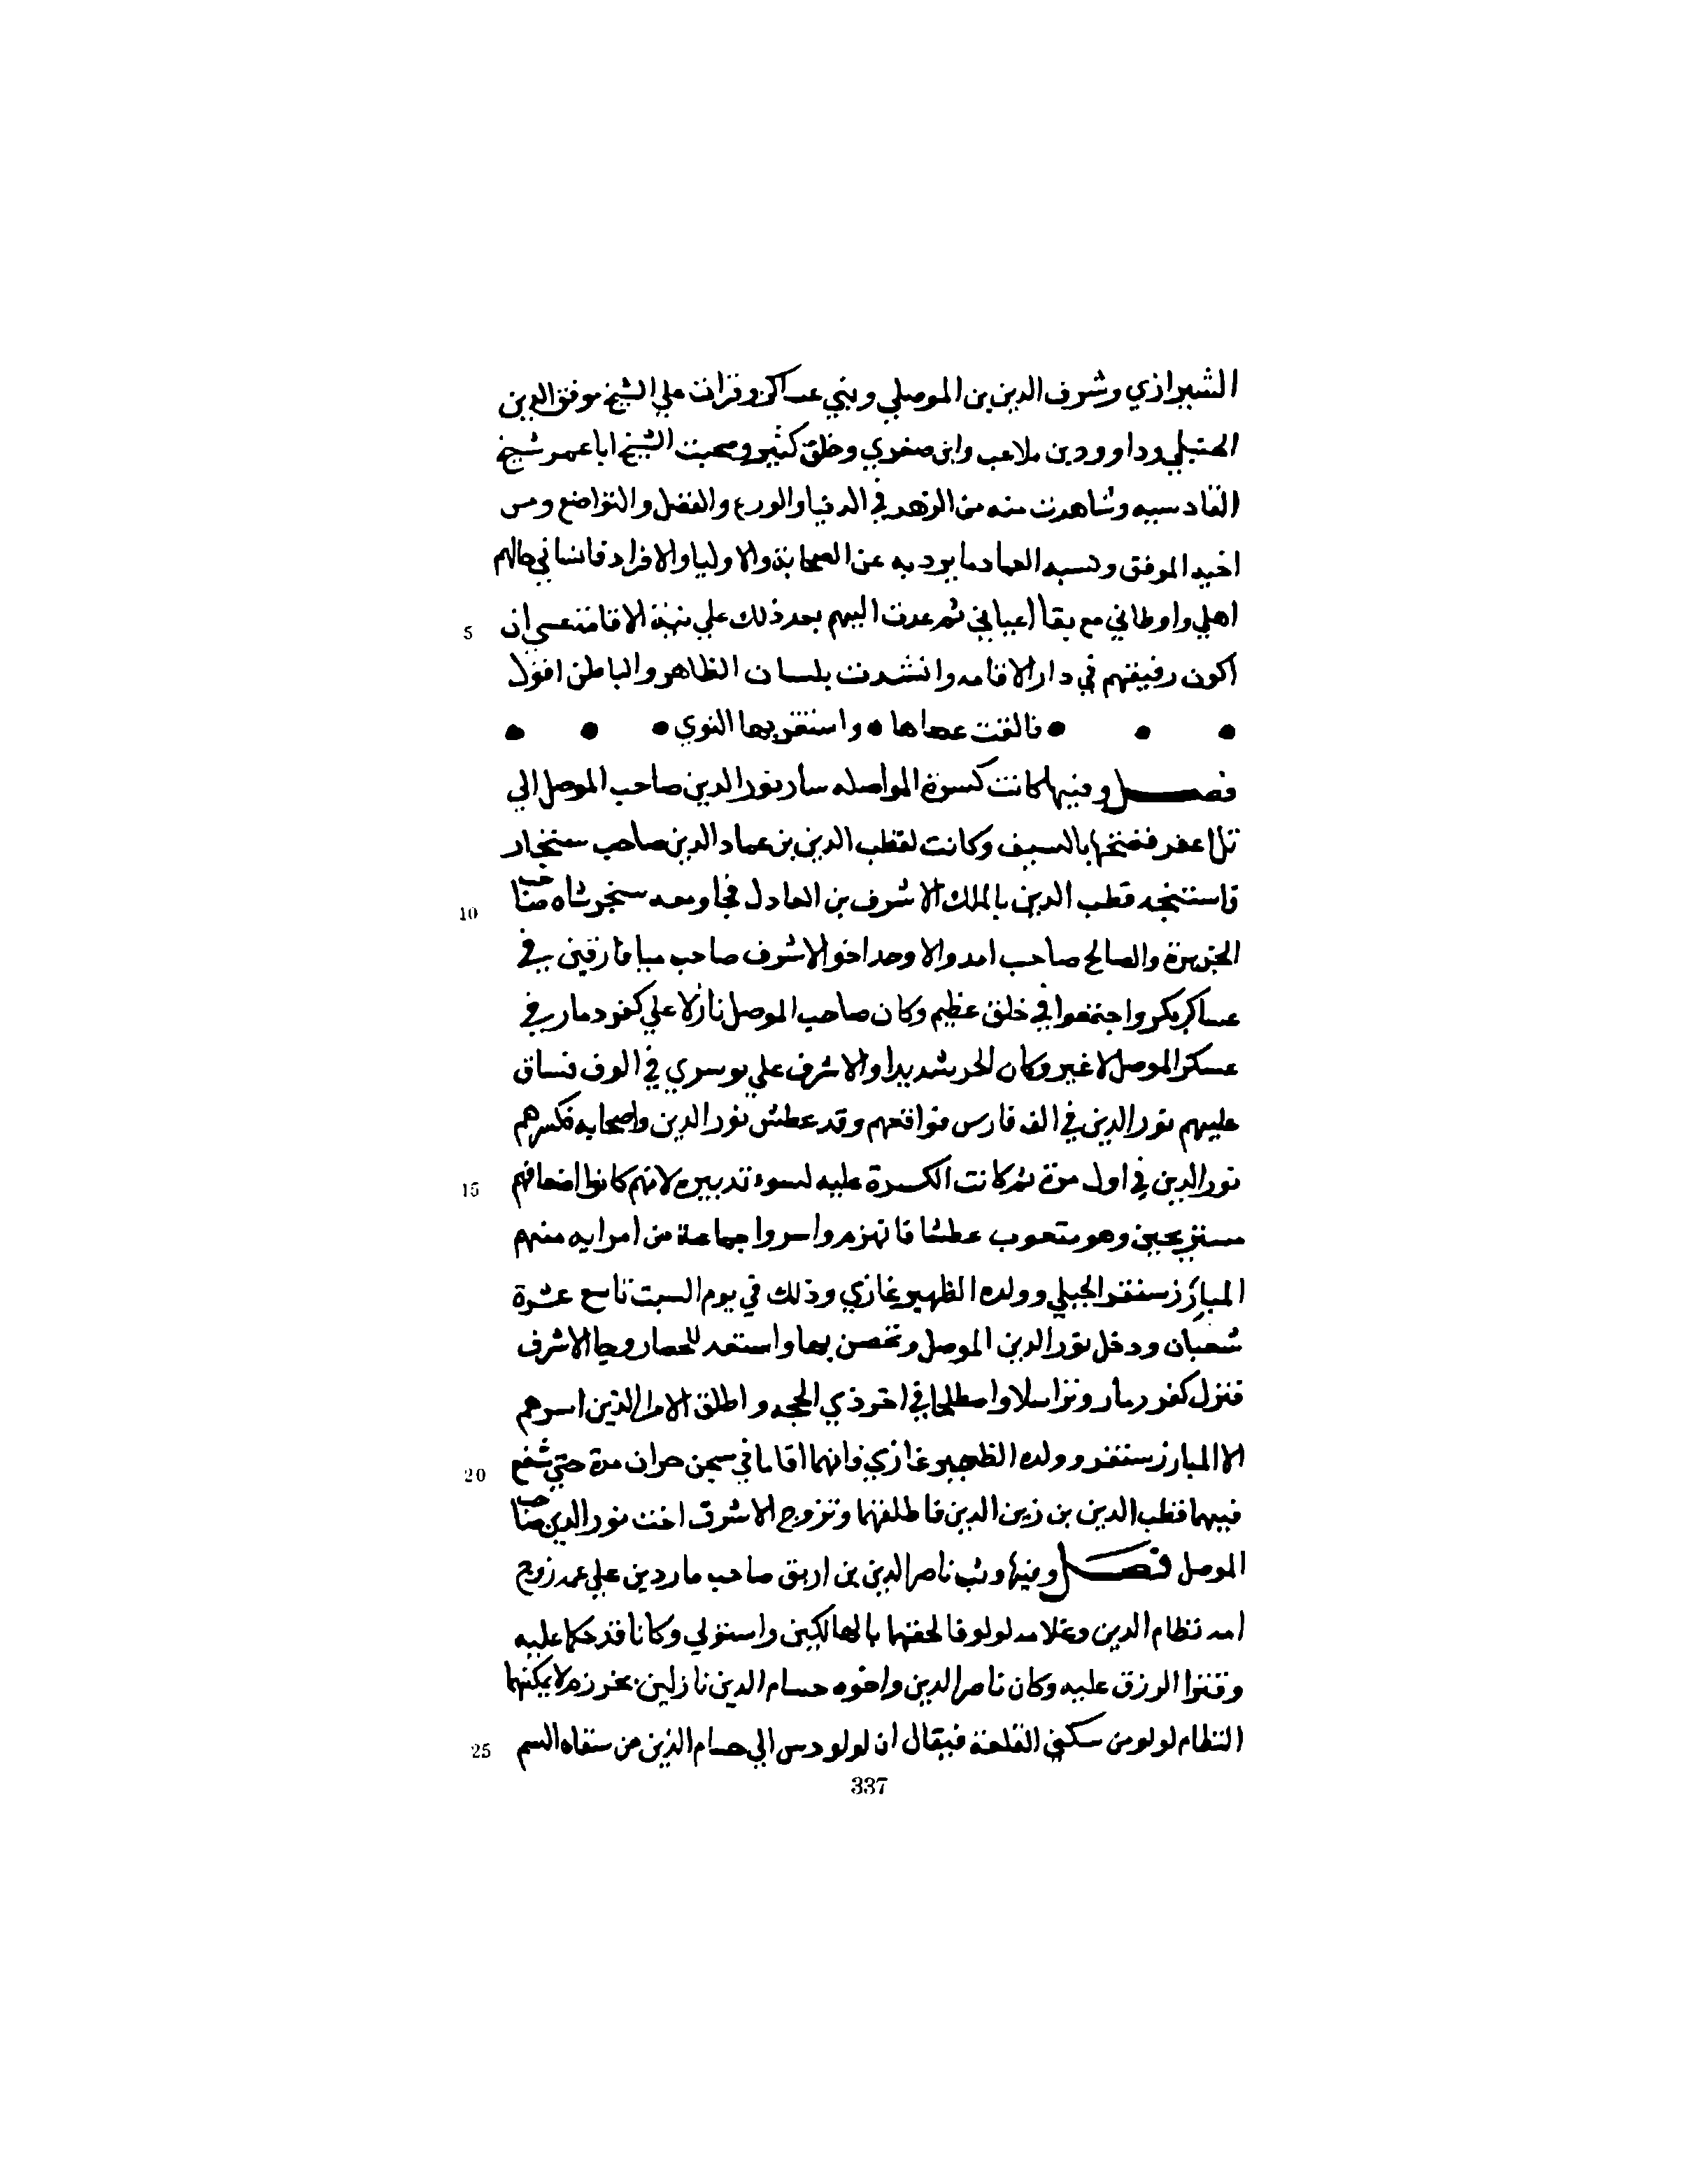 الشيرازي وشرف الدين بن الموصلي وبني عساكر وقرات علي الشيخ موفق الدين
الحنبلي وداوود بن ملاعب وابن صغري وخلق كثير وصحبت الشيخ ابا عمر شيخ
القادسيه وشاهدت منه من الزهد في الدنيا والورع والفضل والتواضع ومن
اخيه الموفق ونسيبه العماد ما يرد به عن الصحابة والاوليا والافراد فانساني حالهم
اهلي واوطاني مع بقا اعياني ثم عدت اليهم بعد ذلك علي نية الاقامة عسي ان
5
اكون رفيقهم في دار الاقامه وانشدت بلسان الظاهر والباطن اقول
• • • فالقت عصاها • واستقر بها النوي • • •
فصل وفيها كانت كسرة المواصله سار نور الدين صاحب الموصل الي
تل اعفر ففتحها بالسيف وكانت لقطب الدين بن عماد الدين صاحب سنجار
فاستنجد قطب الدين بالملك الاشرف بن العادل فجا ومعه سنجر شاه صاحب
10
الجزيرة والصالح صاحب امد والاوحد اخو الاشرف صاحب ميافارقين في
عساكر بكر واجتمعوا في خلق عظيم وكان صاحب الموصل نازلا علي كفر دمار في
عسكر الموصل لا غير وكان الحر شديدا والاشرف علي بوسري في الوف فساق
عليهم نور الدين في الف فارس فواقعهم وقد عطش نور الدين واصحابه فكسرهم
نور الدين في اول مرة ثم كانت الكسرة عليه لسوء تدبيره لانهم كانوا اضعافهم
15
مستريحين وهو متعوب عطشا فانهزم واسروا جماعة من امرايه منهم
المبارز سنقر الجبلي وولده الظهير غازي وذلك في يوم السبت تاسع عشرة
شعبان ودخل نور الدين الموصل وتحصن بها واستعد للحصار وجا الاشرف
فنزل كفر رمار وتراسلا واصطلحا في اخر ذي الحجه واطلق الامرا الذين اسرهم
الا المبارز سنقر وولده الظهير غازي فانهما اقاما في سجن حران مدة حتي شفع
20
فيهما قطب الدين بن زين الدين فاطلقهما وتزوج الاشرف اخت نور الدين صاحب
الموصل فصل وفيها وثب ناصر الدين بن ارتق صاحب ماردين علي عمه زوج
امه نظام الدين وغلامه لولو فالحقهما بالهالكين واستولي وكانا قد حكما عليه
وقترا الرزق عليه وكان ناصر الدين واخوه حسام الدين نازلين لا يمكنهما
النظام لولو من سكني القلعة فيقال ان لولو دس الي حسام الدين من سقاه السم
25
337